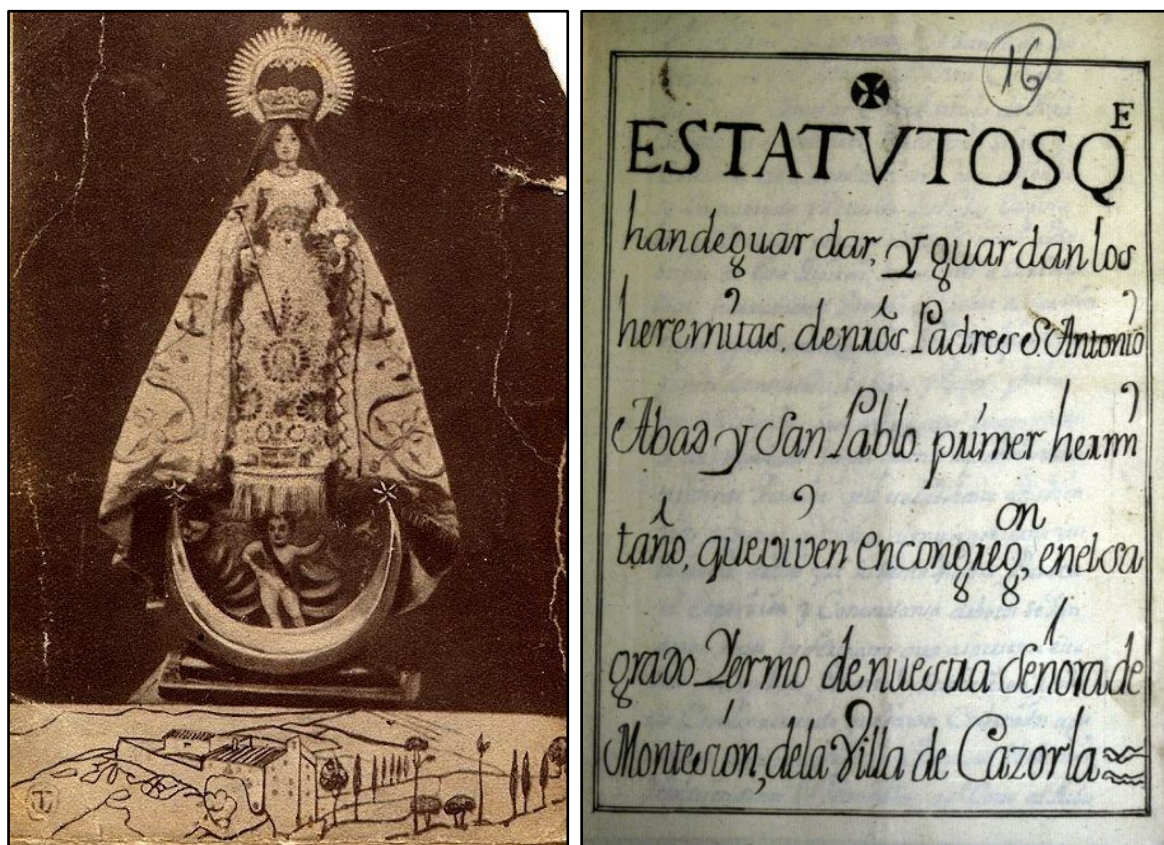 16
ESTATVTOS Q^E
han de guardar, y guardan los
heremitas, de nr̃os Padres S. Antonio
Abad y San Pablo primer hermi
taño, que viven en congreg^on, en el sa
grado Yermo de nuestra Señora de
Montesion, de la Villa de Cazorla